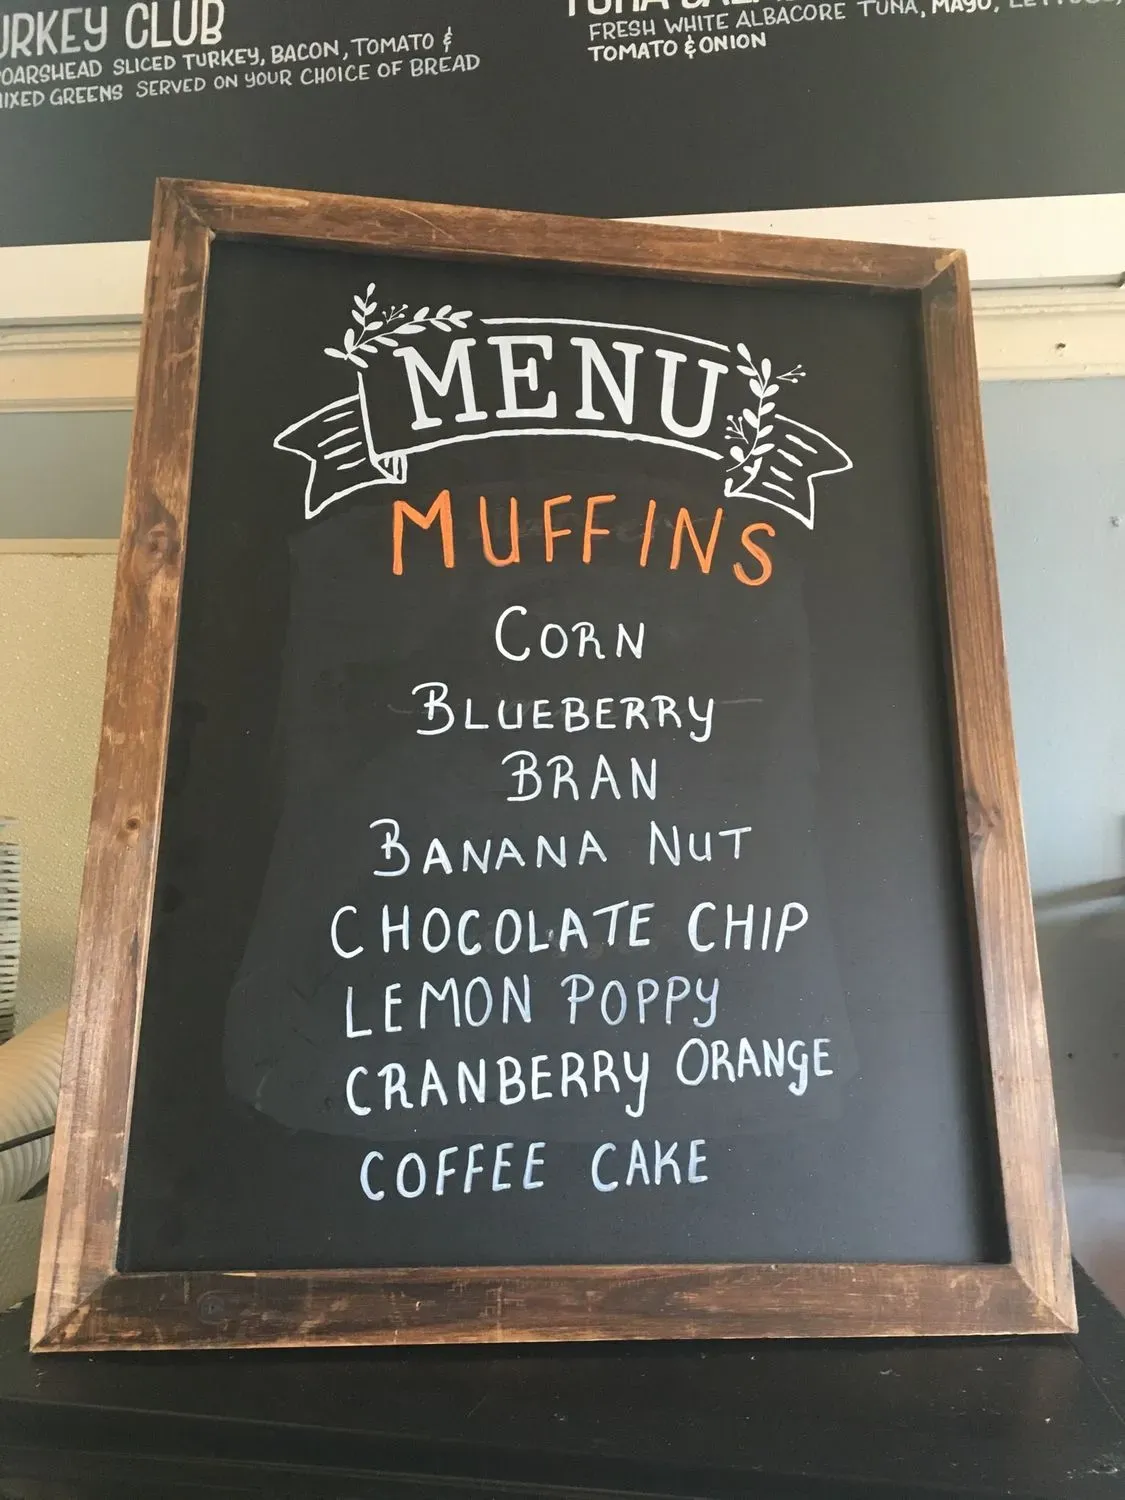 TURKEY CLUB
BOARSHEAD SLICED TURKEY, BACON, TOMATO &
MIXED GREENS SERVED ON YOUR CHOICE OF BREAD
TUNA
FRESH WHITE ALBACORE TUNA, MAYO, LETTUCE,
TOMATO & ONION
MENU
MUFFINS
CORN
BLUEBERRY
BRAN
BANANA NUT
CHOCOLATE CHIP
LEMON POPPY
CRANBERRY ORANGE
COFFEE CAKE